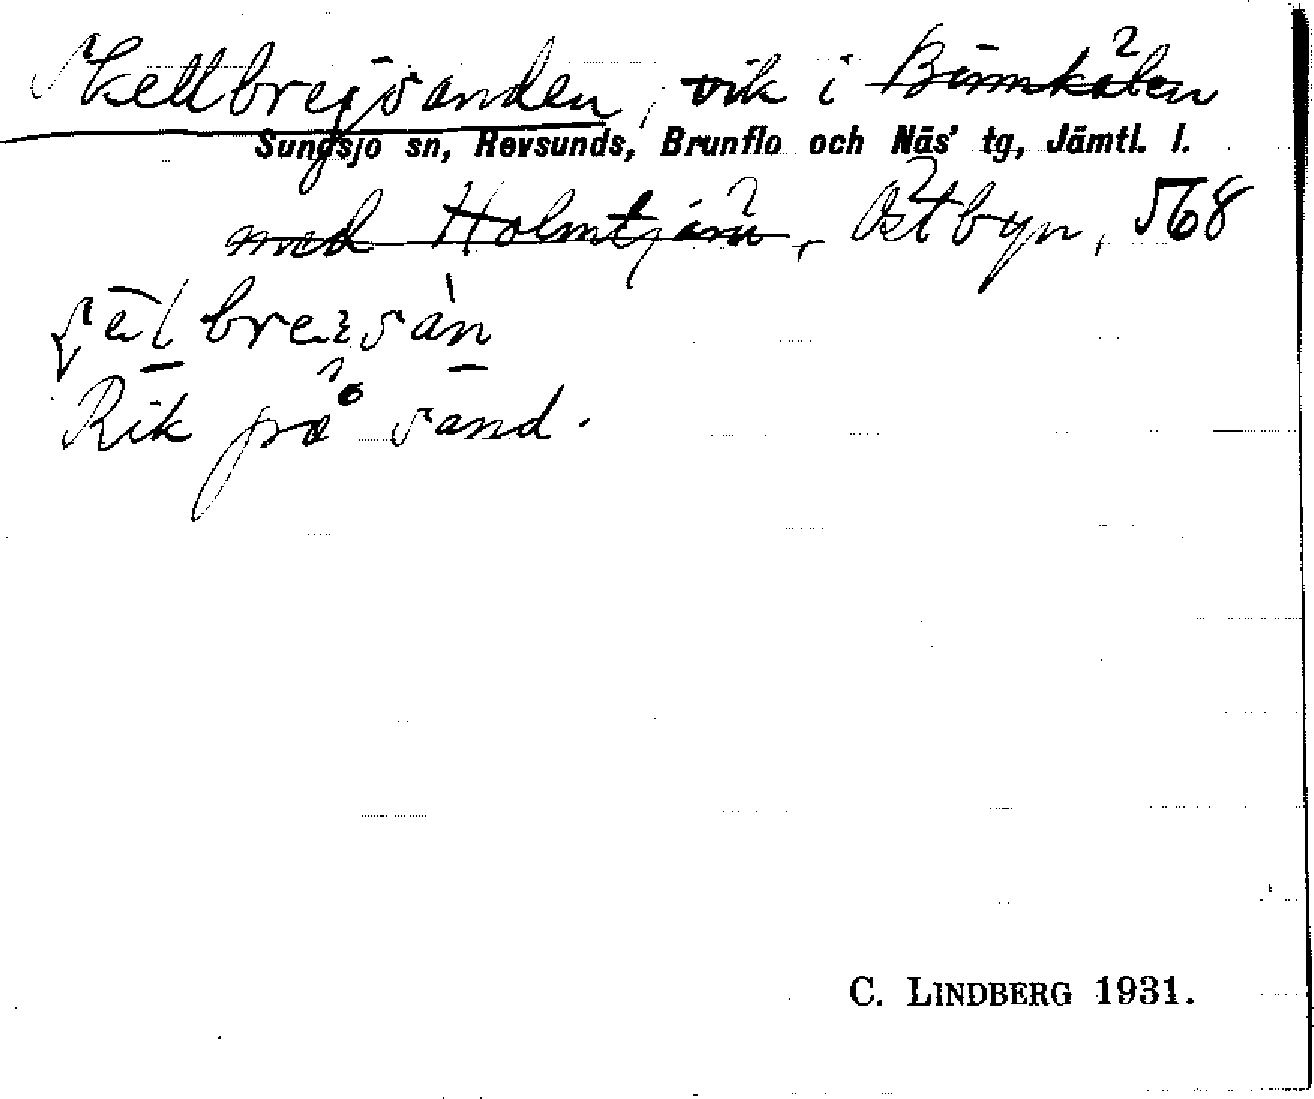 Skellbrejsanden, vik i Binnkälen
Sundsjö sn, Revsunds, Brunflo och Näs' tg, Jämtl. l.
med Holmtjärn, Östbyn, 568
Rik på sand.
C. LINDBERG 1931.